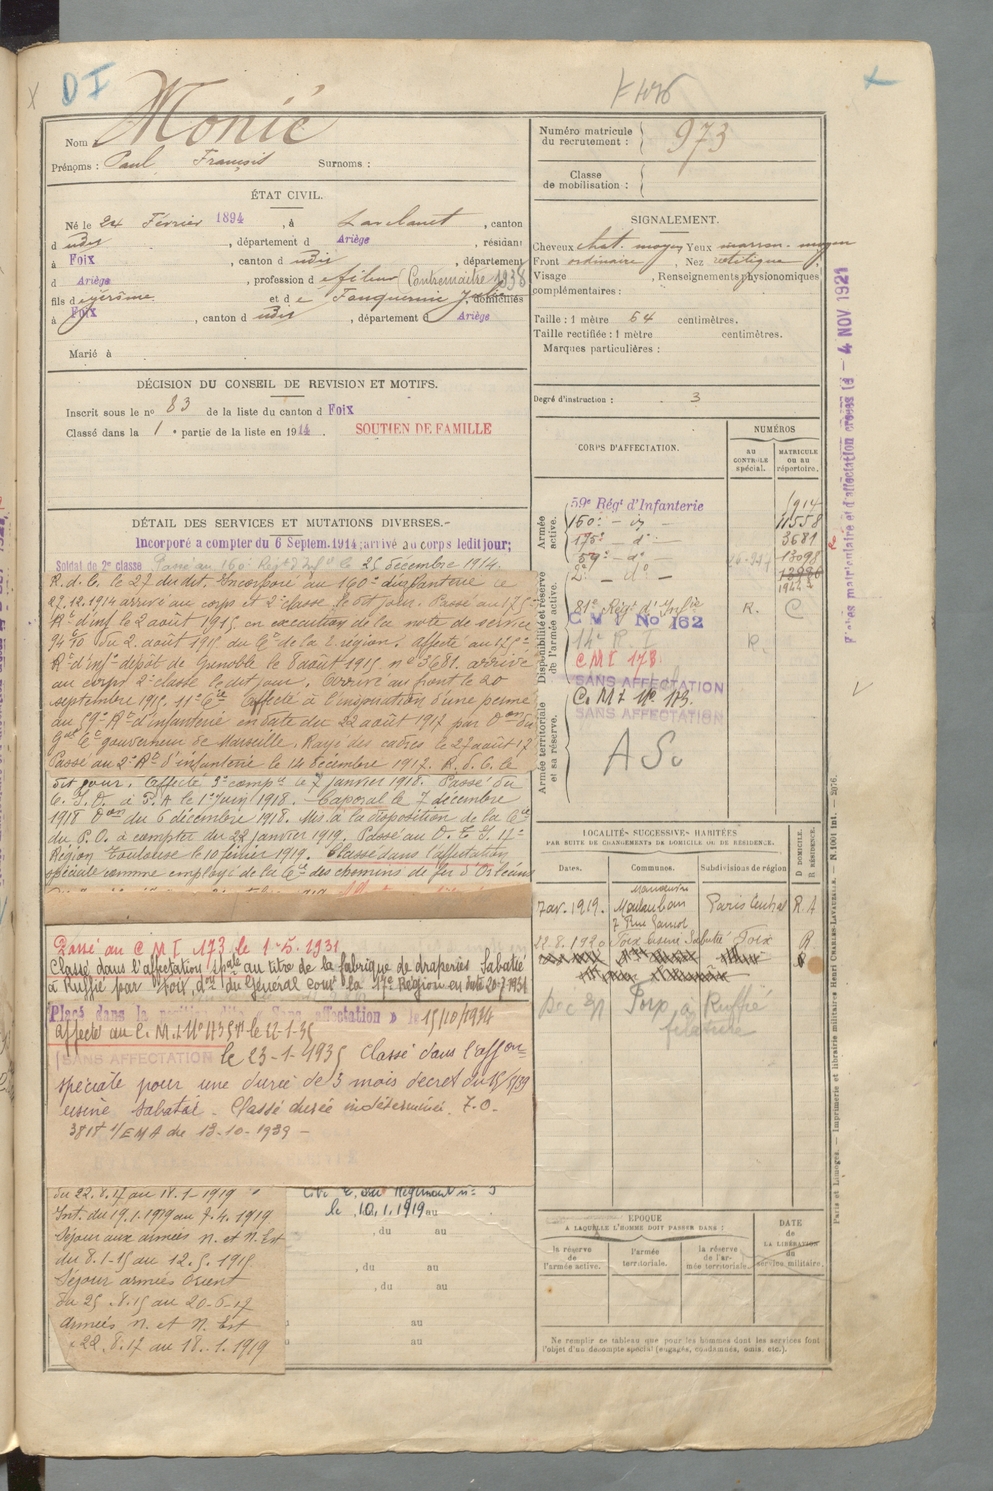 D I
Nom Monié
Prénoms : Paul François Surnoms :
ÉTAT CIVIL.
Né le 24 Février 1894, à Lavelanet, canton
d udit, département d Ariège, résidant
à Foix, canton d udit, département
d Ariège, profession d e fileur (Contremaître 1938
fils d e Jérôme et d e Fauquernie Julie domiciliés
à Foix, canton d udit, département d Ariège
Marié à
DÉCISION DU CONSEIL DE REVISION ET MOTIFS.
Inscrit sous le n° 83 de la liste du canton d Foix
Classé dans la 1 e partie de la liste en 1914. SOUTIEN DE FAMILLE
DÉTAIL DES SERVICES ET MUTATIONS DIVERSES.-
Incorporé a compter du 6 Septem. 1914; arrivé au corps ledit jour;
Soldat de 2e classe Passé au 160e Régt d'Infie le 25 décembre 1914.
R. d. C. le 27 du dit. Incorporé au 160e d'infanterie le
27.12.1914 arrivé au corps et 2e classe le dit jour. Passé au 175e
Rt d'inf le 2 août 1915 en exécution de la note de service
9470 du 2 août 1915 du Gl de la 2 région. Affecté au 175e
Rt d'inf dépôt de Grenoble le 8 août 1915 n° 3681. arrivé
au corps 2e classe le dit jour. Arrivé au front le 20
septembre 1915. 11e Cie Affecté à l'expiration d'une perme
au 59e Rt d'infanterie en date du 22 août 1917 par Don du
Gal Ct gouverneur de Marseille. Rayé des cadres le 27 août 17
Passé au 2e Rt d'infanterie le 14 décembre 1917. R. d. C. le
dit jour. Affecté 3e compie le 7 janvier 1918. Passé du
C. I. D. à P. A le 1er Juin 1918. Caporal le 7 décembre
1918 Don du 6 décembre 1918. Mis à la disposition de la Cie
du P. O. à compter du 22 janvier 1919. Passé au D. T. I. 17e
Région Toulouse le 10 février 1919. Classé dans l'affectation
spéciale comme employé de la Cie des chemins de fer d'Orléans
Passé au C M I 173 le 1-5.1931
Classé dans l'affectation spale au titre de la fabrique de draperies Sabatié
à Ruffié par Foix, don du Général Comt la 17e Région en date 20-7-1931
Placé dans la position dite « Sans affectation » le 15/10/1934
Affecté au C. M. I N° 173 le 22-1-35
SANS AFFECTATION le 23-1-1935 Classé dans l'affon
spéciale pour une durée de 3 mois décret du 15/9/39
usine Sabatié. Classé durée indéterminée. T.O.
3818 1/EMA du 13-10-1939 -
du 22.8.17 au 18.1-1919
Int. du 19.1.1919 au 7.4.1919
Séjour aux armées N. et N. Est
du 8.1-15 au 12.5.1915
Séjour armées Orient
du 25.8.15 au 20-6-17
Armées N. et N. Est
22.8.17 au 18.1.1919
le 10.1.1919 au
, du au
, du au
, du au
au
au
Numéro matricule
du recrutement : 973
Classe
de mobilisation :
SIGNALEMENT.
Cheveux chat. moyen Yeux marron-moyen
Front ordinaire, Nez rectiligne,
Visage , Renseignements physionomiques
complémentaires :
Taille : 1 mètre 64 centimètres.
Taille rectifiée : 1 mètre centimètres.
Marques particulières :
Degré d'instruction : 3
CORPS D'AFFECTATION.
NUMÉROS
AU CONTRÔLE spécial.
MATRICULE OU AU répertoire.
Armée active.
59e Régt d'Infanterie 1914
160e - dº - 11558
175e - dº - 3681
59e - dº - 13098
2e - dº -
Disponibilité et réserve de l'armée active.
81e Régt d'Infie R. C
C M I No 162
14e R I R.
C M I 173
SANS AFFECTATION
Armée territoriale et sa réserve.
C. M I No 173.
SANS AFFECTATION
A S.
LOCALITÉS SUCCESSIVES HABITÉES
PAR SUITE DE CHANGEMENTS DE DOMICILE OU DE RÉSIDENCE.
Dates. Communes. Subdivisions de région D. DOMICILE. R. RÉSIDENCE.
7 av. 1919. Montauban Paris Central R.A
22.8.1920 Foix usine Sabatié Foix R
Dec 31 Prop. à Ruffié
filature
EPOQUE
A LAQUELLE L'HOMME DOIT PASSER DANS :
DATE
DE LA LIBÉRATION
du
service militaire.
la réserve de l'armée active.
l'armée territoriale.
la réserve de l'armée territoriale.
Ne remplir ce tableau que pour les hommes dont les services font
l'objet d'un décompte spécial (engagés, condamnés, omis, etc.).
Paris et Limoges. — Imprimerie et librairie militaires Henri CHARLES-LAVAUZELLE. — N. 100 1 int. — 2076.
4 NOV 1921